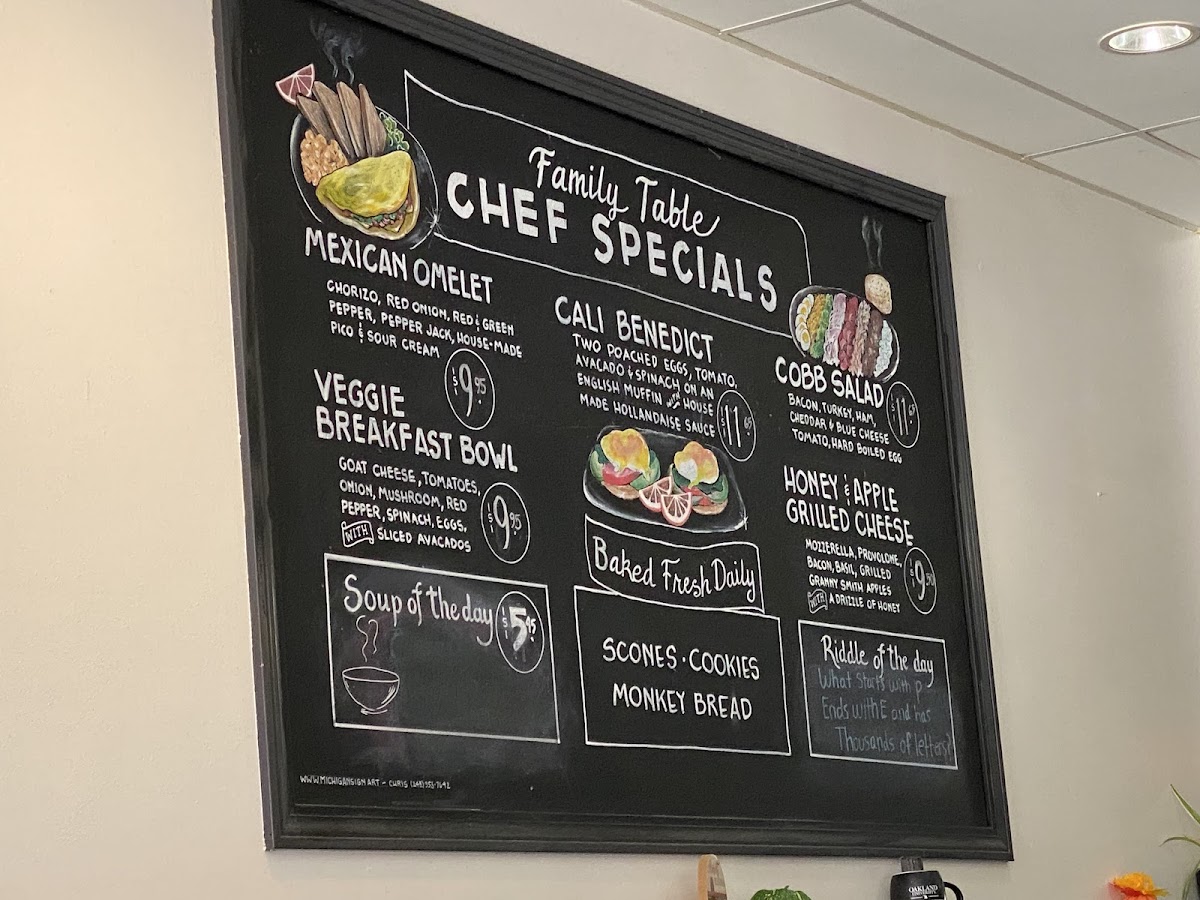 Family Table
CHEF SPECIALS
MEXICAN OMELET
CHORIZO, RED ONION, RED & GREEN
PEPPER, PEPPER JACK, HOUSE-MADE
PICO & SOUR CREAM
$9.95
VEGGIE
BREAKFAST BOWL
GOAT CHEESE, TOMATOES,
ONION, MUSHROOM, RED
PEPPER, SPINACH, EGGS,
WITH SLICED AVACADOS
$9.95
Soup of the day $5.45
CALI BENEDICT
TWO POACHED EGGS, TOMATO,
AVACADO & SPINACH ON AN
ENGLISH MUFFIN WITH HOUSE
MADE HOLLANDAISE SAUCE
$11.69
Baked Fresh Daily
SCONES · COOKIES
MONKEY BREAD
COBB SALAD
BACON, TURKEY, HAM,
CHEDDAR & BLUE CHEESE
TOMATO, HARD BOILED EGG
$11
HONEY & APPLE
GRILLED CHEESE
MOZZERELLA, PROVOLONE,
BACON, BASIL, GRILLED
GRANNY SMITH APPLES
WITH A DRIZZLE OF HONEY
$9.50
Riddle of the day
What Starts with p
Ends with E and has
Thousands of letters?
WWW.MICHIGANSIGN.ART - CHRIS
OAKLAND